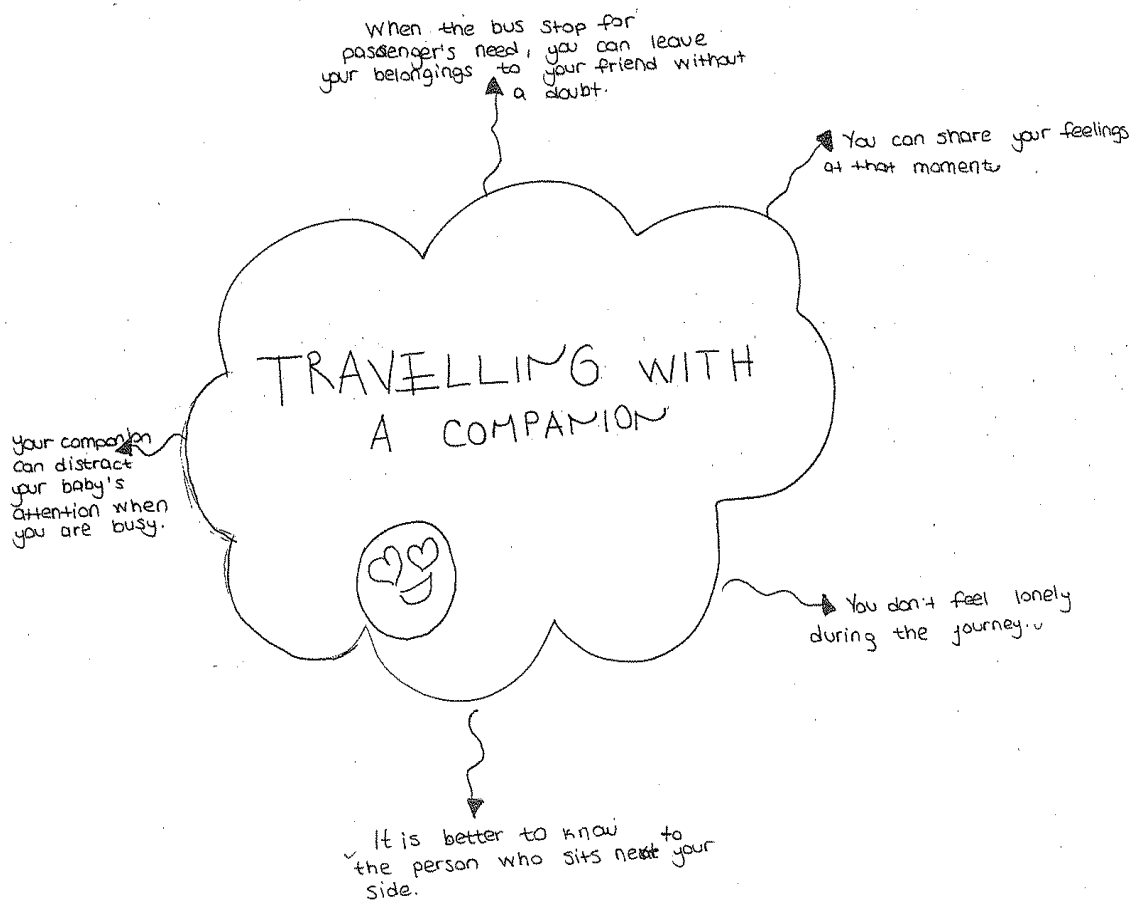 When the bus stop for
passenger's need, you can leave
your belongings to your friend without
a doubt.
You can share your feelings
at that moment
TRAVELLING WITH
A COMPANION
Your companion
can distract
your baby's
attention when
you are busy.
You don't feel lonely
during the journey.
It is better to know
the person who sits next to your
side.